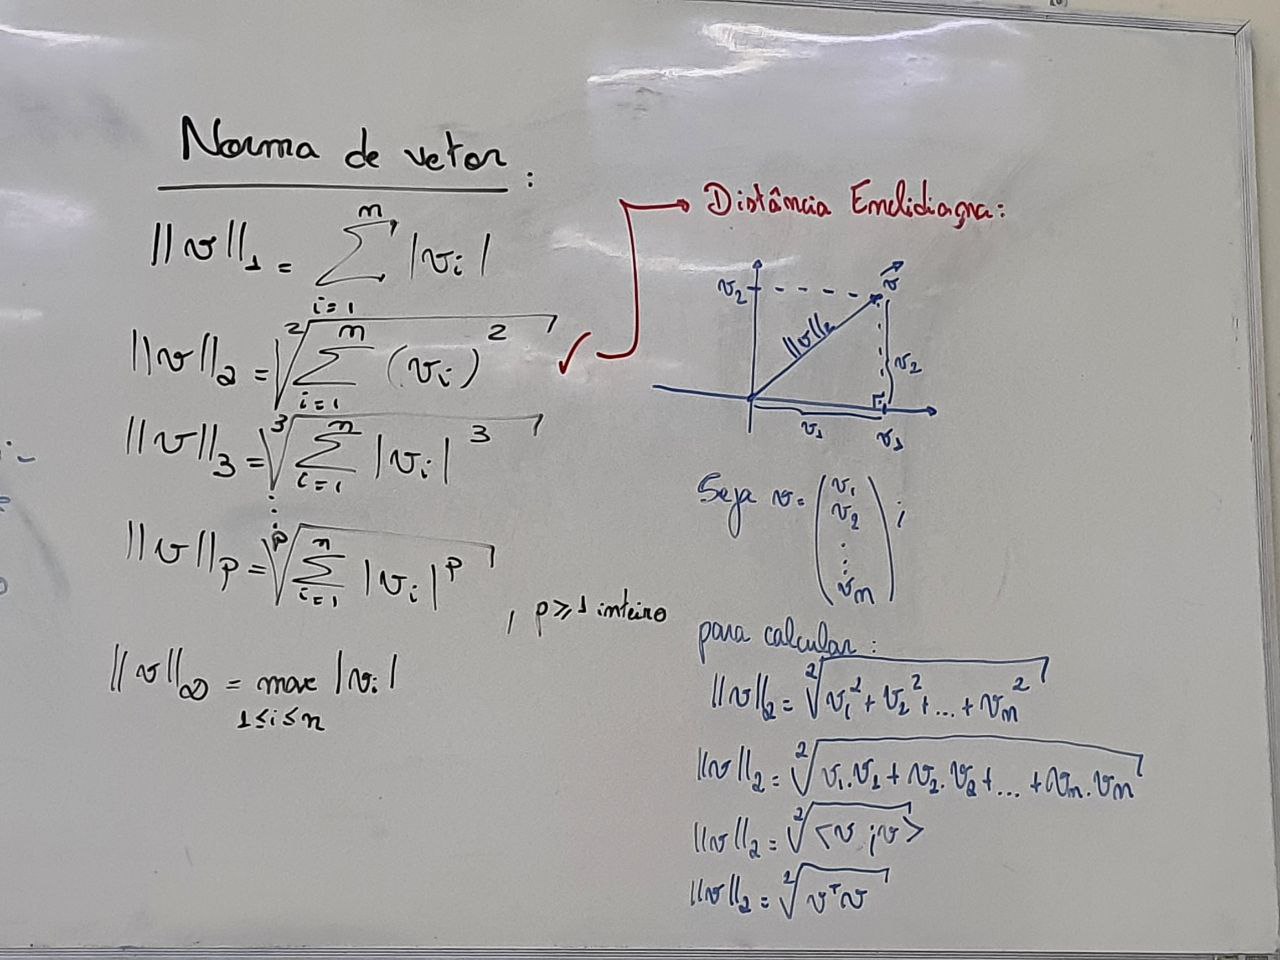 Norma de vetor:
||v||₁ = ∑_{i=1}^{n} |vᵢ|
||v||₂ = ²√(∑_{i=1}^{n} (vᵢ)²) ✓
||v||₃ = ³√(∑_{i=1}^{n} |vᵢ|³)
⋮
||v||ₚ = ᵖ√(∑_{i=1}^{n} |vᵢ|ᵖ) , p ⩾ 1 inteiro
||v||∞ = max |vᵢ|
1≤i≤n
→ Distância Euclidiana:
v₂
v⃗
||v||₂
v₂
v₁
v₁
Seja v = (v₁ v₂ ⋮ vₙ) ;
para calcular:
||v||₂ = ²√(v₁² + v₂² + ... + vₙ²)
||v||₂ = ²√(v₁.v₁ + v₂.v₂ + ... + vₙ.vₙ)
||v||₂ = ²√<v ; v>
||v||₂ = ²√(vᵀv)